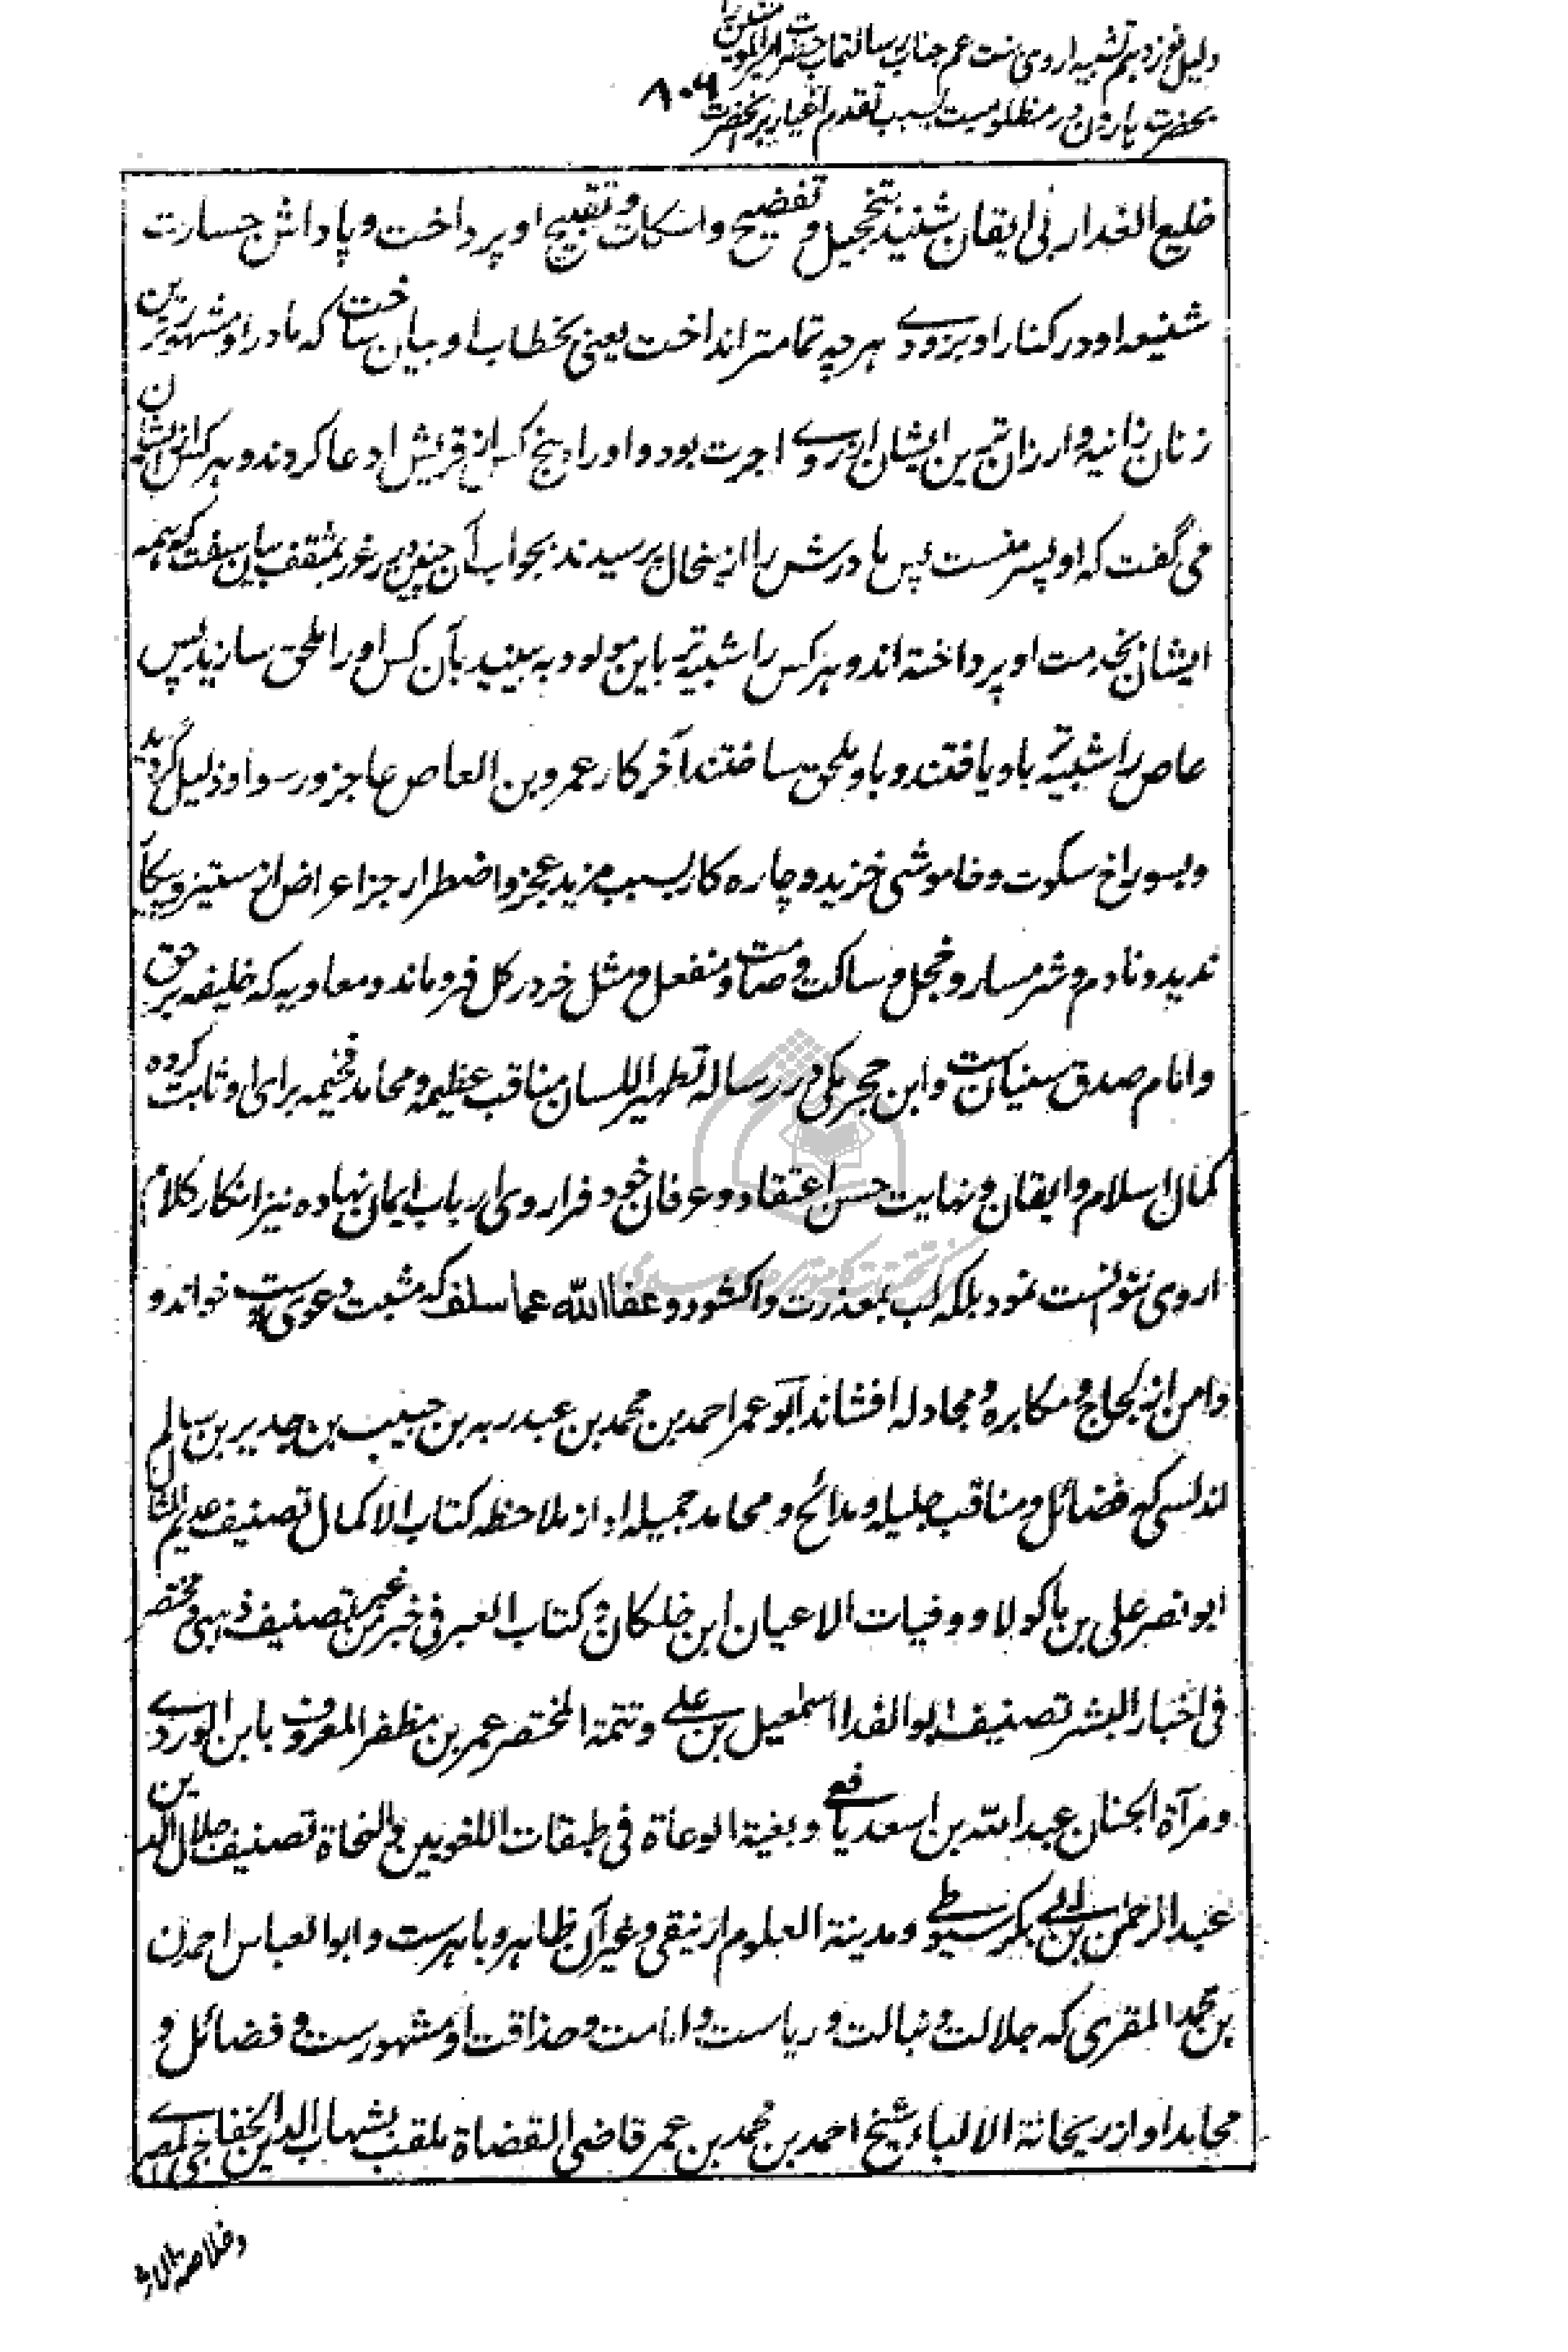 دلیل نوزدهم تشبیه اروی بنت عم جناب رسالتمآب حضرت امیر المومنین را
بحضرت هارون در مظلومیت بسبب تقدم اغیار بر آنحضرت ۸۰۶
خلیع الغدار بی ایقان شنید بتخجیل و تفضیح و اسکات و تقبیح او پرداخت و پاداش جسارت
شنیعه او در کنار او بزودی هر چه تمامتر انداخت یعنی بخطاب او بیان ساخت که مادر او مشهورترین
زنان زانیه و ارزان ترین ایشان از روی اجرت بود و او را پنج کس از قریش ادعا کردند و هر کس از ایشان
می گفت که او پسر منست پس مادرش را ازینحال پرسیدند بجواب آن چنین در رغور بمثقف بیان سفت که همه
ایشان بخدمت او پرداخته اند و هر کس را شبیه تر باین مولود به بینید بآن کس او را ملحق سازید پس
عاص را شبیه تر باو یافتند و باو ملحق ساختند آخر کار عمرو بن العاص عاجز و رسوا و ذلیل گردید
و بسوراخ سکوت و خاموشی خزید و چاره کار بسبب مزید عجز و اضطرار جز اعراض از ستیز و پیکار
ندید و نادم و شرمسار و خجل و ساکت و صامت و منفعل و مثل خر در گل فرو ماند و معاویه که خلیفه بر حق
و امام صدق سنیانست و ابن حجر مکی در رساله تطهیر اللسان مناقب عظیمه و محامد فخیمه برای او ثابت کرده
کمال اسلام و ایقان و نهایت حسن اعتقاد و عرفان خود فرا روی ارباب ایمان نهاده نیز انکار کلام
اروی نتوانست نمود بلکه لب بمعذرت واکشود و عفا الله عما سلف که مثبت دعوی ست خواند و
دامن از لجاج و مکابره و مجادله افشاند ابو عمر احمد بن محمد بن عبد ربه بن حبیب بن حدیر بن سالم
اندلسی که فضائل و مناقب جلیله و مدائح و محامد جمیله او از ملاحظه کتاب الاکمال تصنیف عدیم الشان
ابو نصر علی بن ماکولا و وفیات الاعیان ابن خلکان و کتاب العبر فی خبر من غبر تصنیف ذهبی و مختصر
فی اخبار البشر تصنیف ابو الفدا اسمعیل بن علی و تتمة المختصر عمر بن مظفر المعروف بابن الوردی
و مرآة الجنان عبد الله بن اسعد یافعی و بغیة الوعاة فی طبقات اللغویین و النحاة تصنیف جلال الدین
عبد الرحمن بن ابی بکر سیوطی و مدینة العلوم ازنیقی و غیر آن ظاهر و باهرست و ابو العباس احمد بن
بن محمد المقری که جلالت و نبالت و ریاست و امامت و حذاقت او مشهورست و فضائل و
محامد او از ریحانة الالباء شیخ احمد بن محمد بن عمر قاضی القضاة ملقب بشهاب الدین الخفاجی المصری
و خلاصة الاثر